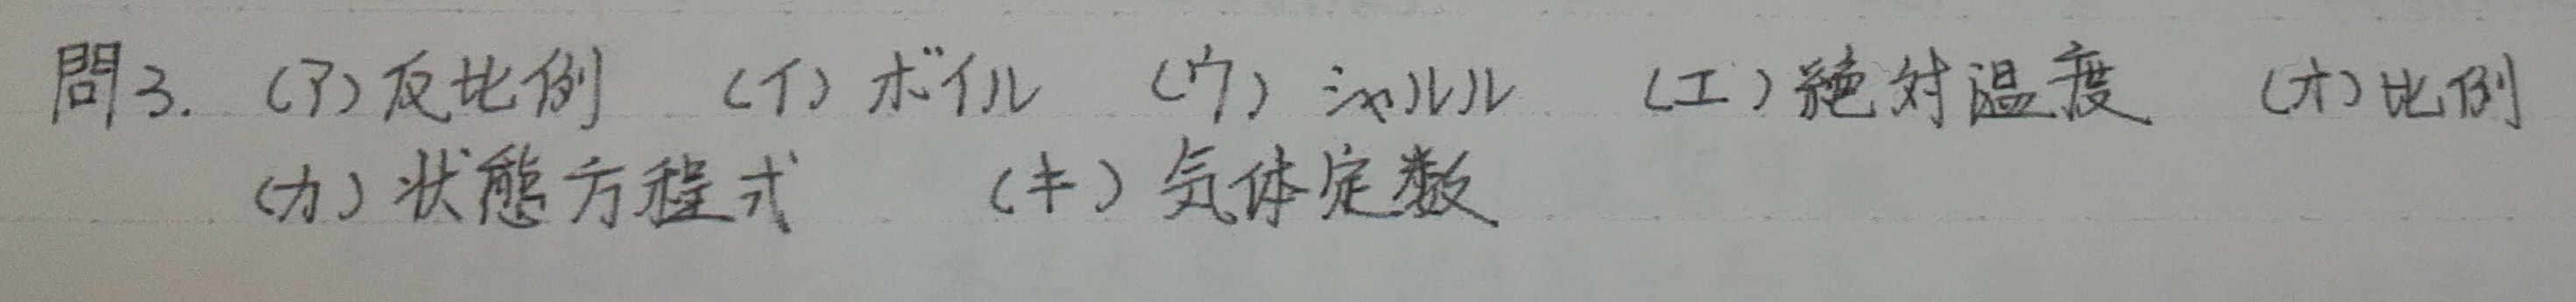 問3. (ア)反比例 (イ)ボイル (ウ)シャルル (エ)絶対温度 (オ)比例
(カ)状態方程式 (キ)気体定数